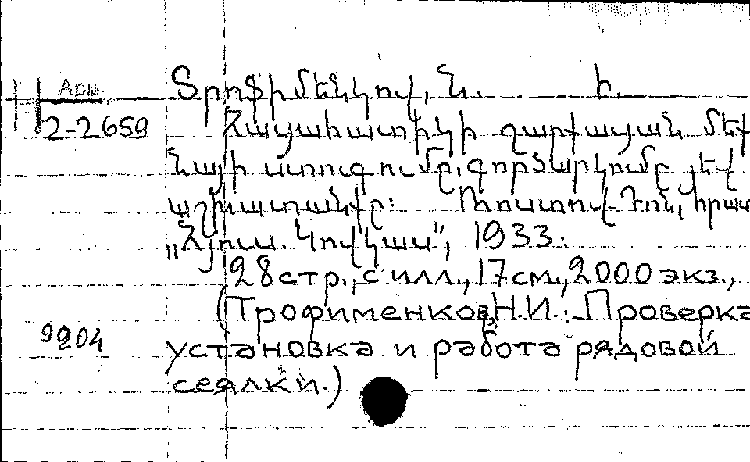 Տրոֆիմենկով, Ն. Ի.
Арм
2-2659
Հացահատիկի շարքացան մեք
նայի ստուգումը, գործարկումը յեվ
աշխատանքը: Ռոստով-Դոն, հրատ
„Հյուս. Կովկաս", 1933.
28 стр., с илл., 17 см., 2000 экз.,
(Трофименков, Н.И. Проверка
9204
установка и работа рядовой
сеялки.)